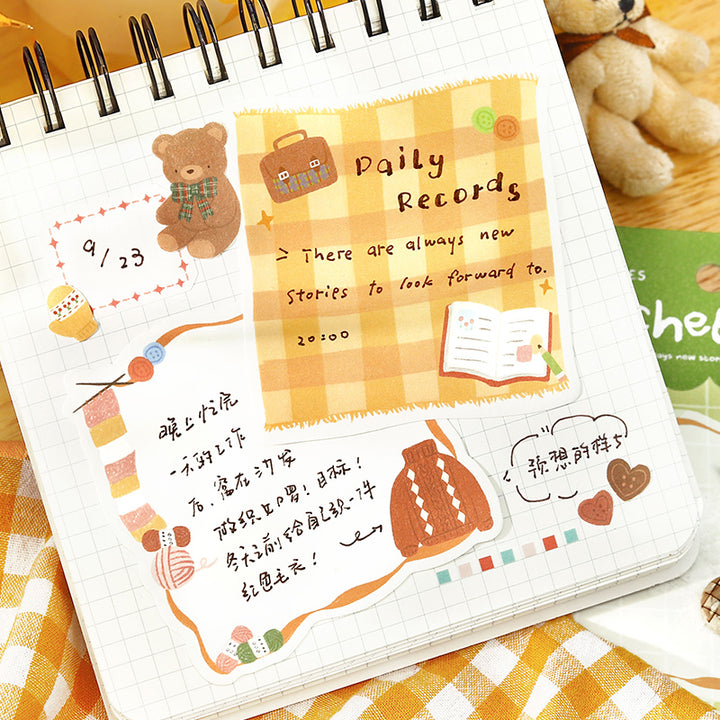 9/23
Daily
Records
> There are always new
Stories to look forward to.
20:00
晚上忙完
一天的工作
后,窝在沙发
做织女啰!目标!
冬天之前给自己织一件
红色毛衣!
预想的样子
ES
chel
ays new stor